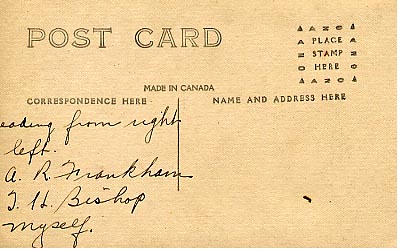 POST CARD
AZO
PLACE
STAMP
HERE
AZO
MADE IN CANADA
CORRESPONDENCE HERE
NAME AND ADDRESS HERE
eading from right
left.
A. R. Frankham
T. H. Bishop
myself.